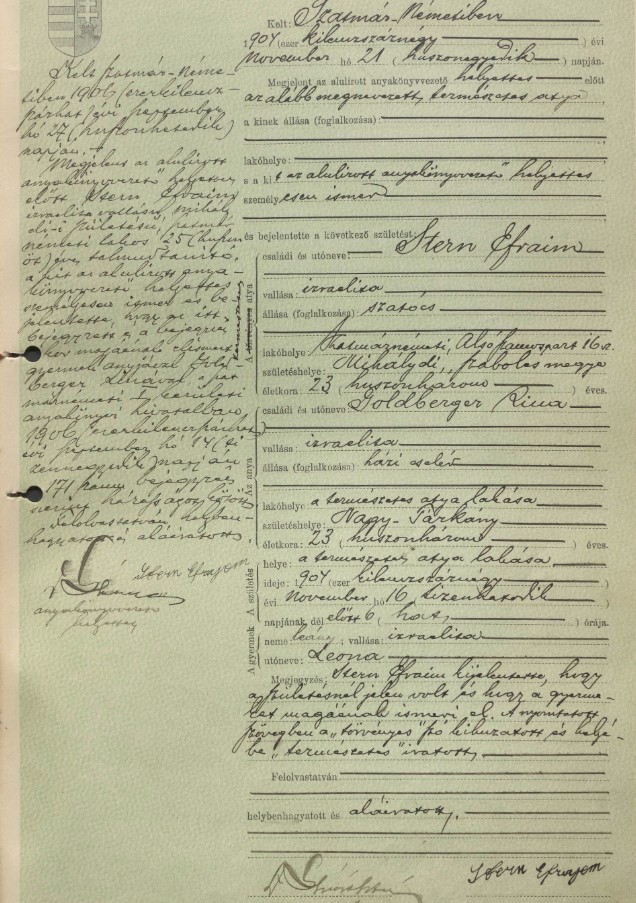 Kelt Szatmár-Néme-
tiben 1906 (ezerkilencz-
százhat) évi szeptember
hó 27 (huszonhetedik)
napján.
Megjelent az alulirott
anyakönyvvezető helyettes
előtt Stern Efraim
izraelita vallásu, mihály-
di-i születésü, szatmár-
németi lakos 25 (huszon-
öt) éves, talmud tanitó,
a kit az alulirott anya-
könyvvezető helyettes
személyesen ismer és be-
jelentette, hogy az itt
bejegyzett és a bejegyzés-
kor magáénak elismert
gyermek anyjával Gold-
berger
márnémeti I. kerületi
anyakönyvi hivatalban
1906 (ezerkilenczszázhat)
évi szeptember hó 14 (ti-
zennegyedik) napján
171 szám bejegyzés
szerint házasságot kötött.
Felolvastatván, helyben-
hagyatott és aláiratott.
Stern Efrajem
anyakönyvvezető
helyettes
Kelt: Szatmár-Németiben
1904 (ezer kilenczszáznégy) évi
November hó 21 (huszonegyedik) napján.
Megjelent az alulirott anyakönyvvezető helyettes előtt
az alább megnevezett, természetes atya
a kinek állása (foglalkozása):
lakóhelye:
s a kit az alulirott anyakönyvvezető helyettes
személyesen ismer
és bejelentette a következő születést:
A törvényes természetes atya
családi és utóneve: Stern Efraim
vallása: izraelita
állása (foglalkozása): szatócs
lakóhelye: Szatmárnémeti, Alsó Szamospart 16 sz.
születéshelye: Mihálydi, Szabolcs megye
életkora: 23 (huszonhárom) éves.
Az anya
családi és utóneve: Goldberger Rina
vallása: izraelita
állása (foglalkozása): házi cseléd
lakóhelye: a természetes atya lakása
születéshelye: Nagy-Tárkány
életkora: 23 (huszonhárom) éves.
A születés
helye: a természetes atya lakása
ideje: 1904 (ezer kilenczszáznégy)
évi November hó 16 tizenhatodik
napjának dél előtt 6 (hat) órája.
A gyermek
neme: leány; vallása: izraelita
utóneve: Leona
Megjegyzés: Stern Efraim kijelentette, hogy
a születésnél jelen volt és hogy a gyerme-
ket magáénak ismeri el. A nyomtatott
szövegben a „törvényes" szó kihuzatott és helyé-
be „természetes" iratott.
Felolvastatván
helybenhagyatott és aláiratott.
Stern Efrajem